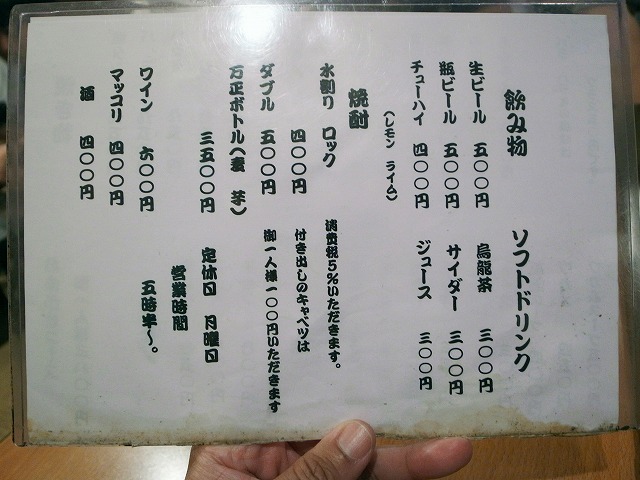 飲み物
生ビール 五〇〇円
瓶ビール 五〇〇円
チューハイ 四〇〇円
（レモン ライム）
焼酎
水割り ロック
四〇〇円
ダブル 五〇〇円
万正ボトル（麦 芋）
三五〇〇円
ワイン 六〇〇円
マッコリ 四〇〇円
酒 四〇〇円
ソフトドリンク
烏龍茶 三〇〇円
サイダー 三〇〇円
ジュース 三〇〇円
消費税5%いただきます。
付き出しのキャベツは
御一人様一〇〇円いただきます
定休日 月曜日
営業時間
五時半〜。